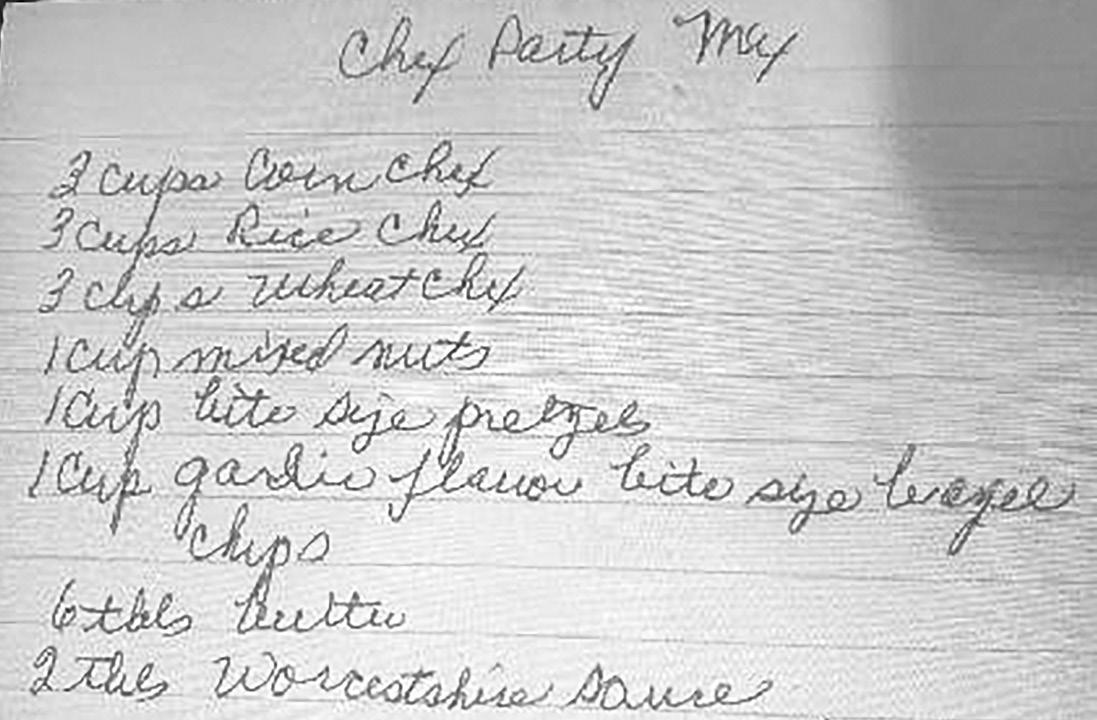 Chex Party Mix
3 cups Corn Chex
3 cups Rice Chex
3 cups Wheat Chex
1 cup mixed nuts
1 cup bite size pretzels
1 cup garlic flavor bite size bagel
chips
6 tbls butter
2 Tbls Worcestshire Sauce